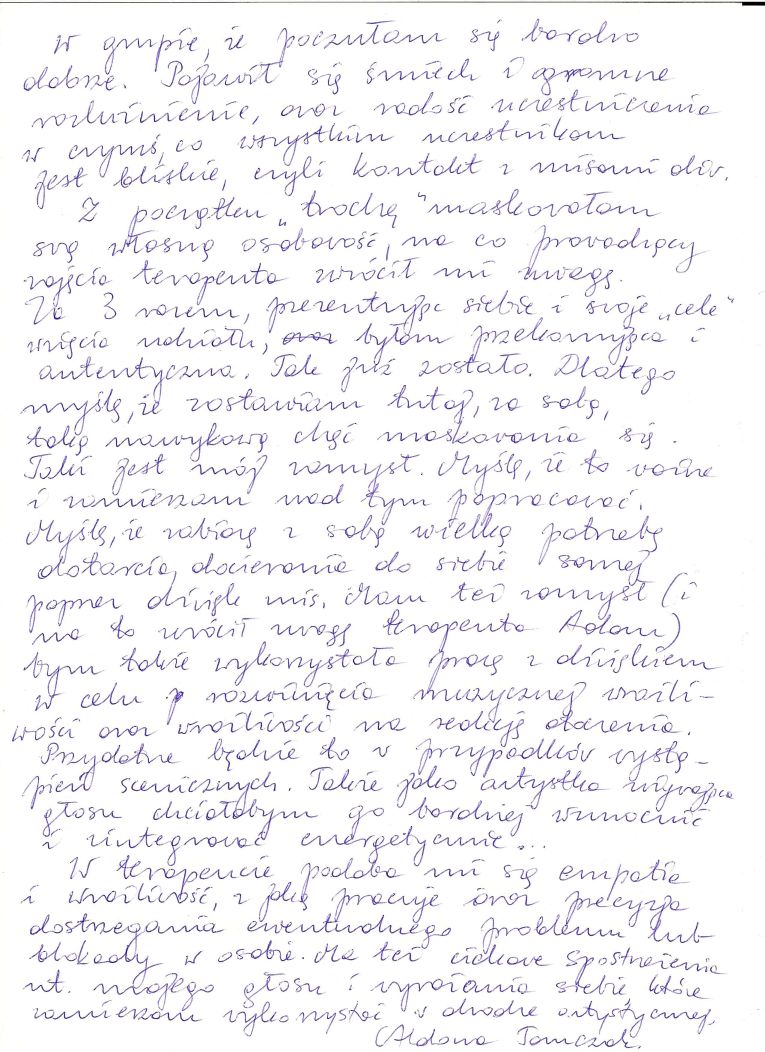 W grupie, że poczułam się bardzo
dobrze. Pojawił się śmiech i ogromne
rozluźnienie, oraz radość uczestniczenia
w czymś, co wszystkim uczestnikom
jest bliskie, czyli kontakt z misami dźw.
Z początku „trochę" maskowałam
swą własną osobowość, na co prowadzący
zajęcia terapeuta zwrócił mi uwagę.
Za 3 razem, prezentując siebie i swoje „cele"
wzięcia udziału, byłam przekonująca i
autentyczna. Tak już zostało. Dlatego
myślę, że zostawiam tutaj, za sobą,
taką nawykową chęć maskowania się.
Taki jest mój zamysł. Myślę, że to ważne
i zamierzam nad tym popracować.
Myślę, że zabiorę z sobą wielką potrzebę
dotarcia, docierania do siebie samej
poprzez dźwięk mis. Mam też zamysł (i
na to zwrócił uwagę terapeuta Adam)
bym także wykorzystała pracę z dźwiękiem
w celu rozwinięcia muzycznej wrażli-
wości oraz wrażliwości na reakcję otoczenia.
Przydatne będzie to w przypadków wystą-
pień scenicznych. Także jako artystka używająca
głosu chciałabym go bardziej wzmocnić
i zintegrować energetycznie...
W terapeucie podoba mi się empatia
i wrażliwość, z jaką pracuje oraz precyzja
dostrzegania ewentualnego problemu lub
blokady w osobie. Ma też ciekawe spostrzeżenia
nt. mojego głosu i wyrażania siebie które
zamierzam wykorzystać w drodze artystycznej.
(Aldona Tomczak.